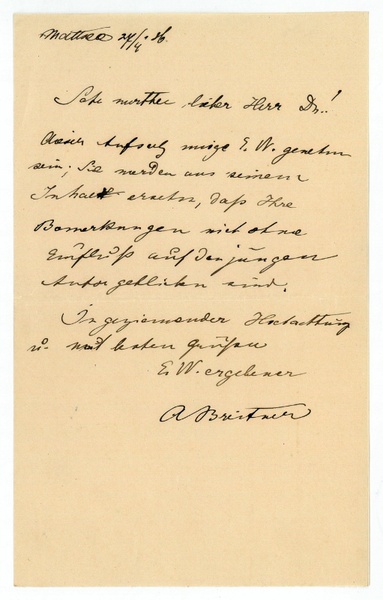 Mattsee 27/4 26.
Sehr werther lieber Herr Dr.!
dieser Aufsatz möge E. W. genehm
sein; Sie werden aus seinem
Inhalt ersehn, daß Ihre
Bemerkungen nicht ohne
Einfluß auf den jungen
Autor geblieben sind.
In geziemender Hochachtung
u. mit besten Grüßen
E. W. ergebener
A Breitner